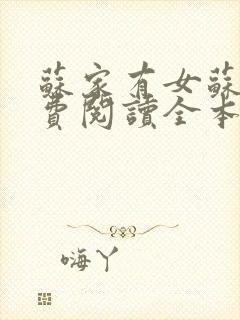 蘇家有女蘇
費閱讀全本
嗨丫